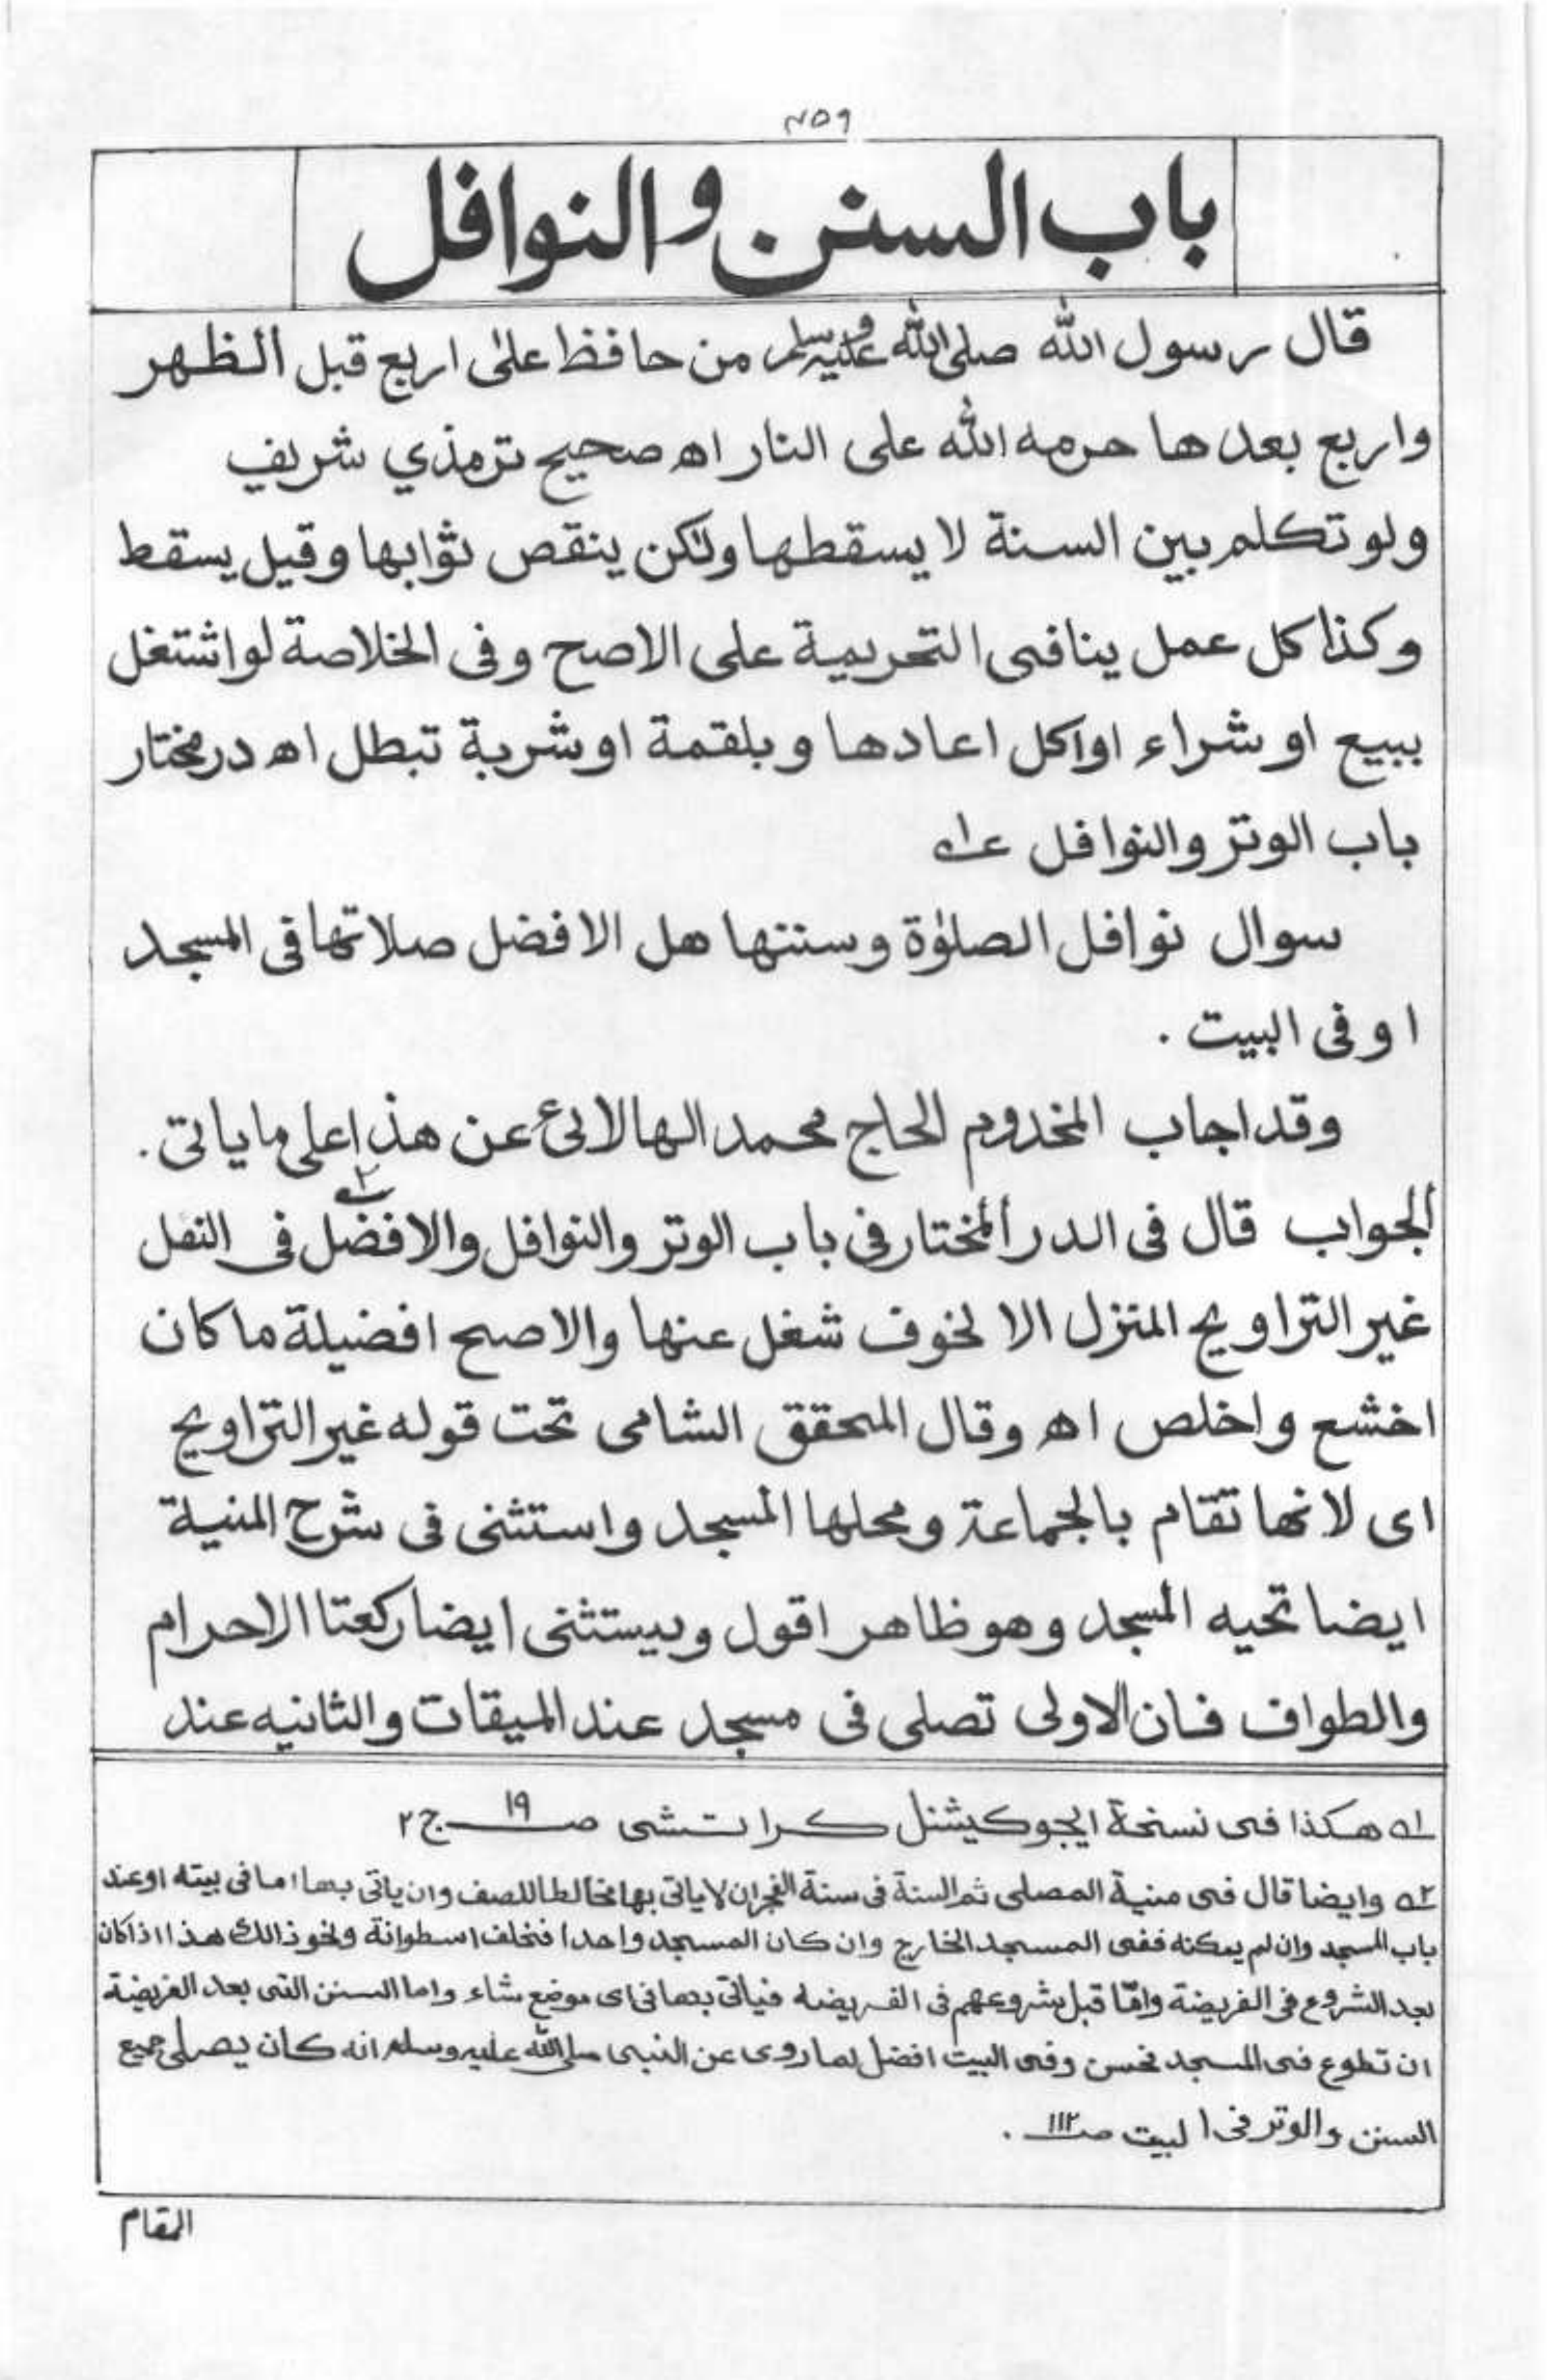 ٤٥٩
باب السنن والنوافل
قال رسول الله صلى الله عليه وسلم من حافظ على اربع قبل الظهر
واربع بعدها حرمه الله على النار اه صحيح ترمذي شريف
ولو تكلم بين السنة لا يسقطها ولكن ينقص ثوابها وقيل يسقط
وكذا كل عمل ينافى التحريمة على الاصح وفى الخلاصة لو اشتغل
ببيع او شراء او اكل اعادها وبلقمة او شربة تبطل اه درمختار
باب الوتر والنوافل ١ه
سوال نوافل الصلوٰة وسننها هل الافضل صلاتها فى المسجد
او فى البيت .
وقد اجاب المخدوم الحاج محمد الهالائى عن هذا على ما ياتى .
الجواب قال فى الدر المختار فى باب الوتر والنوافل والافضل ٢ فى النفل
غير التراويح المنزل الا لخوف شغل عنها والاصح افضيلة ما كان
اخشع واخلص اه وقال المحقق الشامى تحت قوله غير التراويح
اى لانها تقام بالجماعة ومحلها المسجد واستثنى فى شرح المنية
ايضا تحيه المسجد وهو ظاهر اقول ويستثنى ايضا ركعتا الاحرام
والطواف فان الاولى تصلى فى مسجد عند الميقات والثانيه عند
١ه هكذا فى نسخة ايجوكيشنل كراتشى صـ ١٩ ج ٢
٢ه وايضا قال فى منية المصلى ثم السنة فى سنة الفجر ان لا ياتى بها مخالطا للصف وان ياتى بها اما فى بيته او عند
باب المسجد وان لم يمكنه ففى المسجد الخارج وان كان المسجد واحدا فخلف اسطوانة ونحو ذالك هذا اذا كان
بعد الشروع فى الفريضة وامّا قبل شروعهم فى الفريضه فياتى بها فى اى موضع شاء واما السنن التى بعد الفريضة
ان تطوع فى المسجد فحسن وفى البيت افضل لما روى عن النبى صلى الله عليه وسلم انه كان يصلى جميع
السنن والوتر فى البيت صـ ١١٢ .
المقام